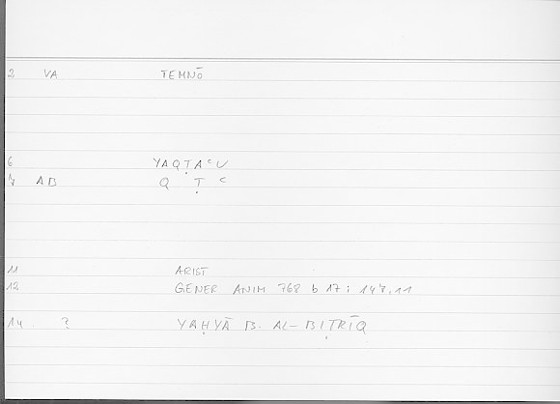 2 VA TEMNŌ
6 YAQṬAᶜU
7 AB Q Ṭ ᶜ
11 ARIST
12 GENER ANIM 768 b 17 : 147,11
14 ? YAḤYĀ B. AL-BIṬRĪQ